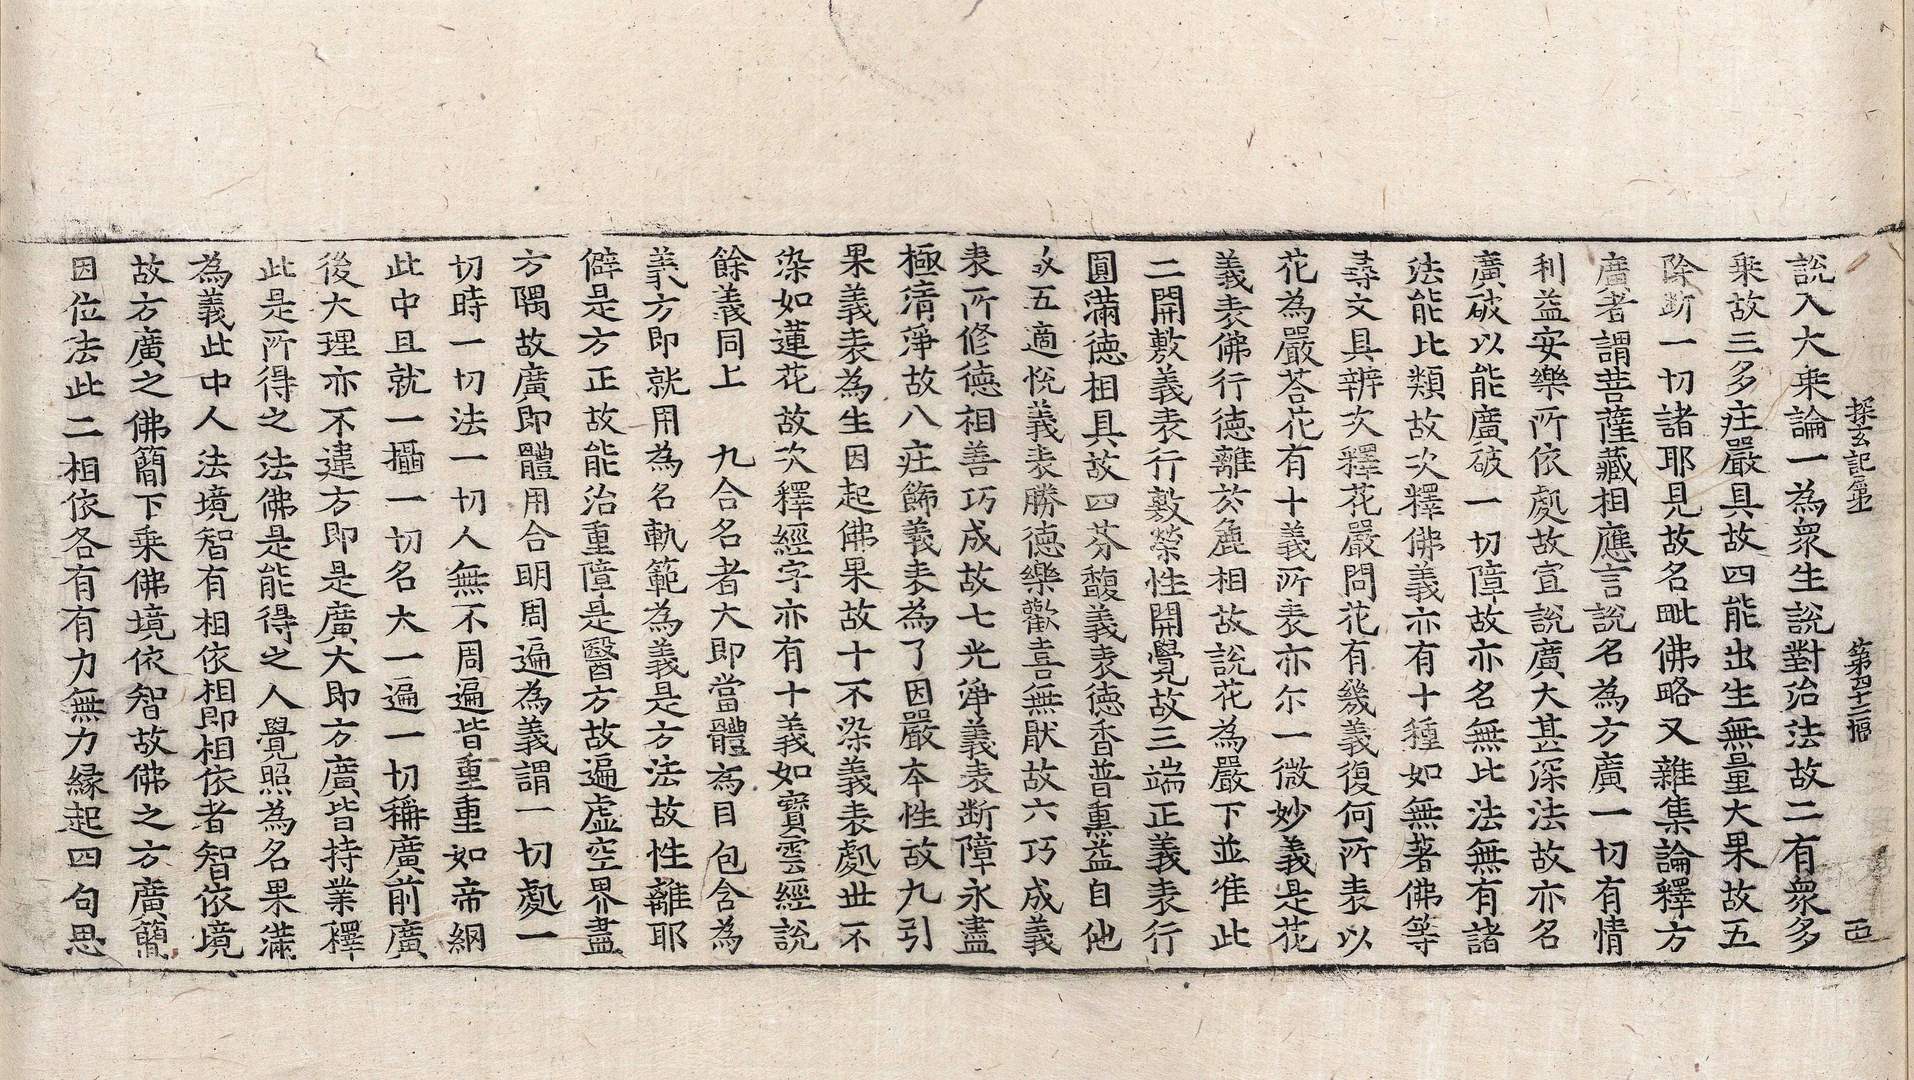 探玄記第一　第四十二幅　五
說入大乘論一為衆生說對治法故二有衆多
乘故三多㽵嚴具故四能出生無量大果故五
除断一切諸耶見故名毗佛略又雜集論釋方
廣者謂菩薩藏相應言說名為方廣一切有情
利益安樂所依處故宣說廣大甚深法故亦名
廣破以能廣破一切障故亦名無比法無有諸
法能比類故次釋佛義亦有十種如無著佛等
尋文具辨次釋花嚴問花有幾義復何所表以
花為嚴荅花有十義所表亦尒一微妙義是花
義表佛行德離於麁相故說花為嚴下並准此
二開敷義表行敷榮性開覺故三端正義表行
圓滿德相具故四芬馥義表德香普熏益自他
故五適悅義表勝德樂歡喜無猒故六巧成義
表所修德相善巧成故七光淨義表断障永盡
極清淨故八㽵飾義表為了因嚴本性故九引
果義表為生因起佛果故十不染義表處世不
染如蓮花故次釋經字亦有十義如寶雲經說
餘義同上　九合名者大即當體為目包含為
義方即就用為名軌範為義是方法故性離耶
僻是方正故能治重障是醫方故遍虛空界盡
方隅故廣即體用合明周遍為義謂一切處一
切時一切法一切人無不周遍皆重重如帝網
此中且就一攝一切名大一遍一切稱廣前廣
後大理亦不違方即是廣大即方廣皆持業釋
此是所得之法佛是能得之人覺照為名果滿
為義此中人法境智有相依相即相依者智依境
故方廣之佛簡下乘佛境依智故佛之方廣簡
因位法此二相依各有有力無力緣起四句思